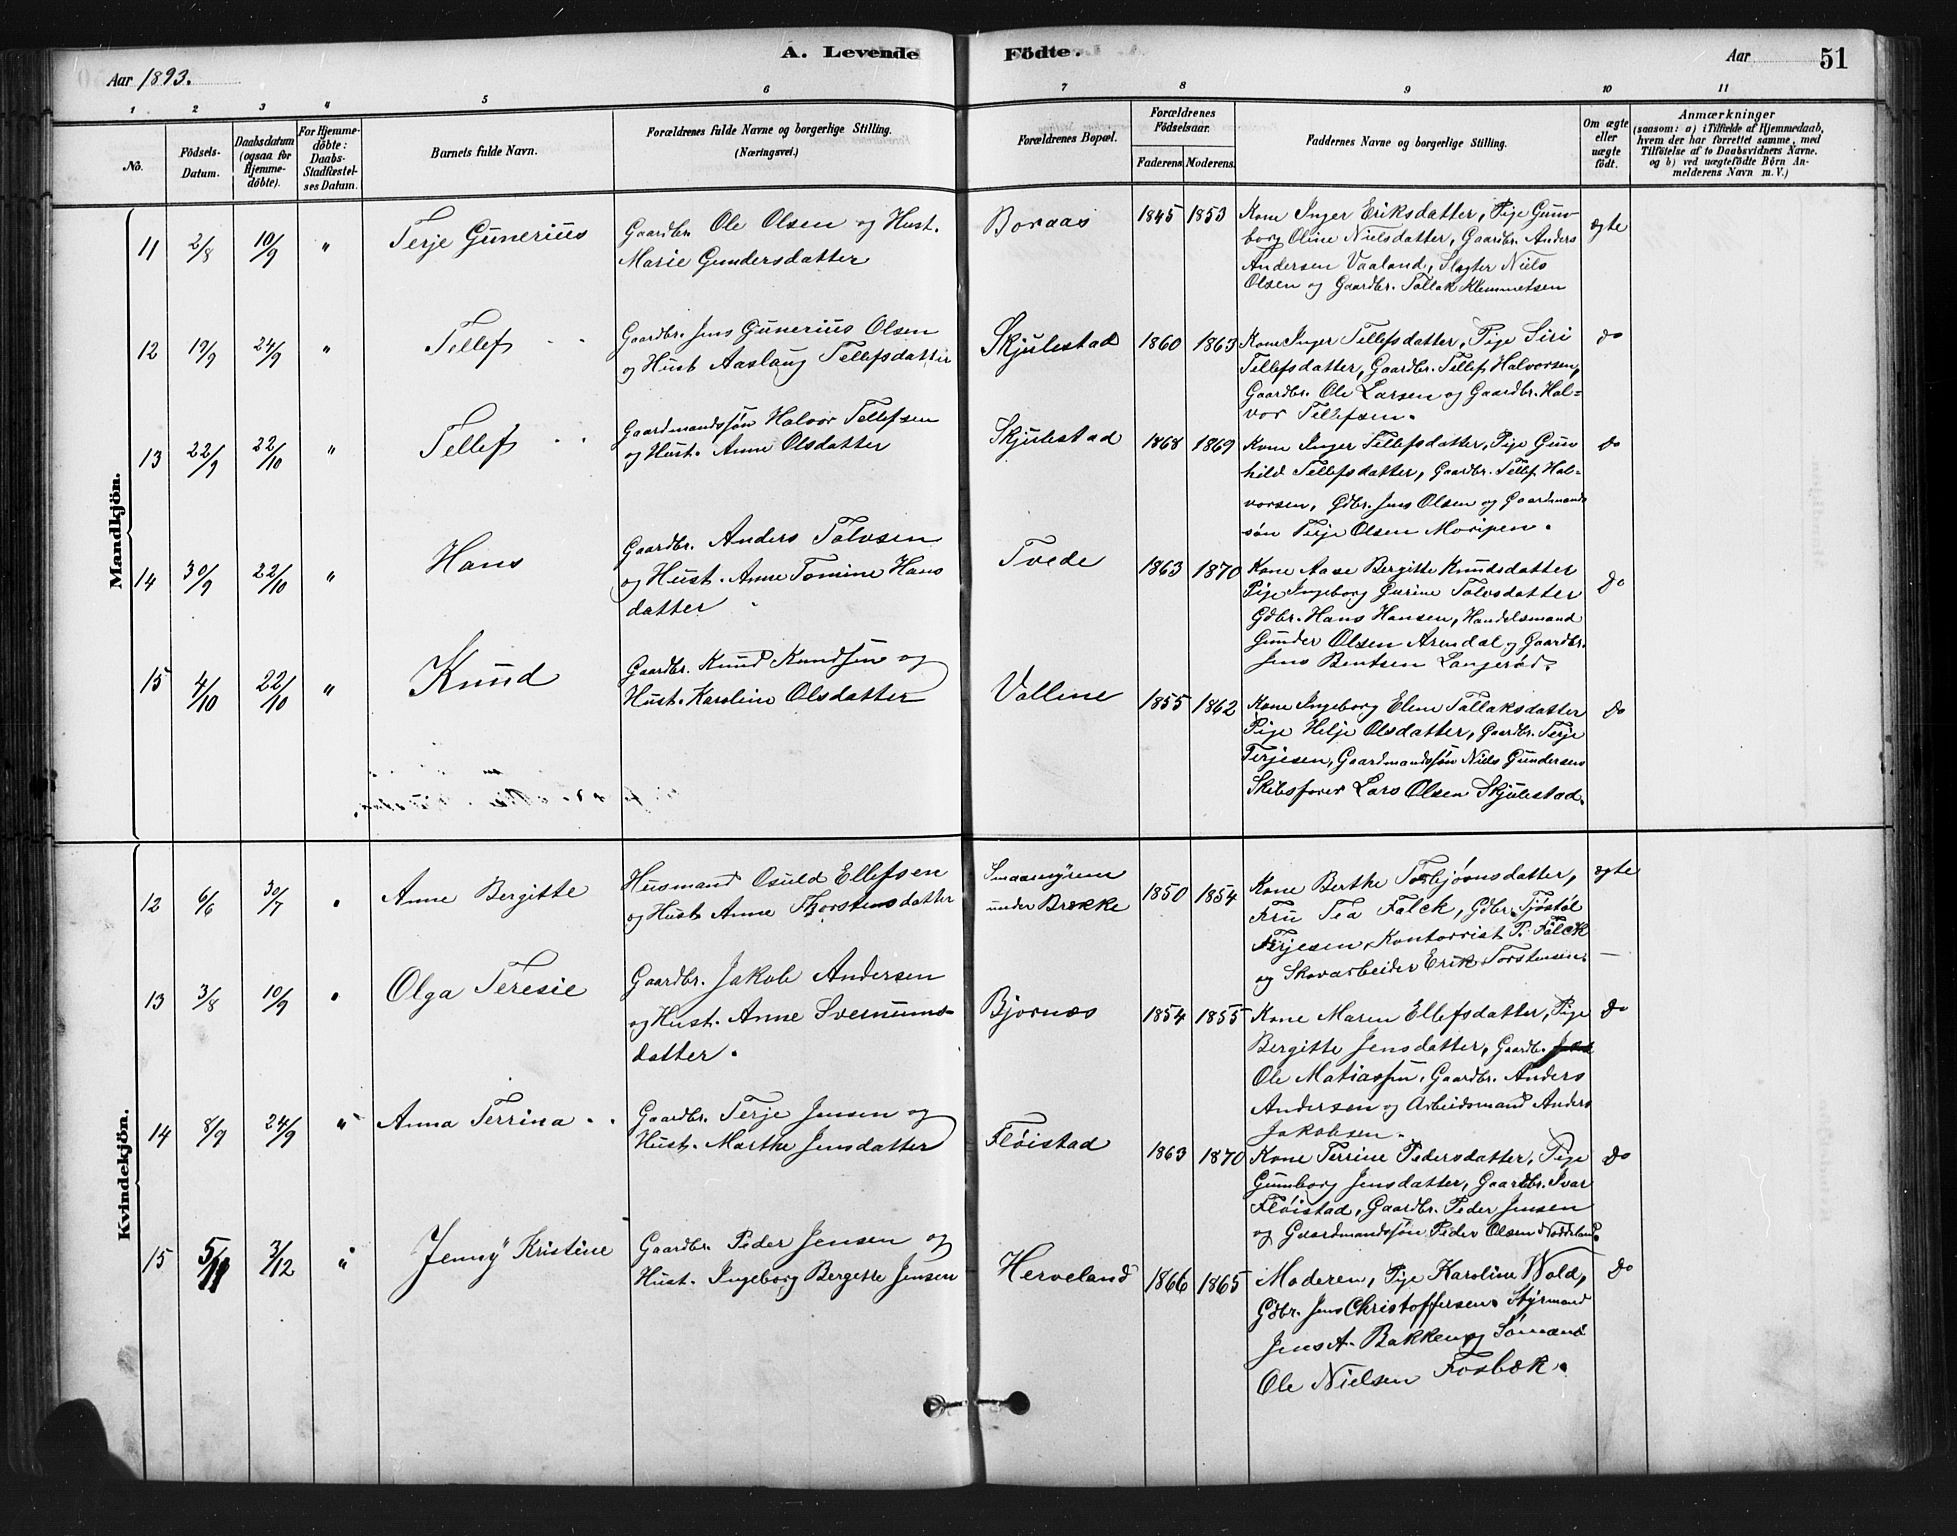 A. Levende Födte.
Aar 1893.
Aar
51
1 2 3 " 5 6 7 8 9 10 11
No.
Födsels-Datum.
Daabsdatum (ogsaa for Hjemme-döbte).
For Hjemme-döbte: Daabs-Stadfæstel-ses Datum.
Barnets fulde Navn.
Forældrenes fulde Navne og borgerlige Stilling.
(Næringsvei.)
Forældrenes Bopæl.
Forældrenes Födselsaar.
Faderens Moderens.
Faddernes Navne og borgerlige Stilling.
Om ægte eller uægte födt.
Anmærkninger
(saasom: a) i Tilfælde af Hjemmedaab,
hvem der har forrettet samme, med
Tilföielse af to Daabsvidners Navne.
og b) ved uægtefödte Börn An-
melderens Navn m. V.)
Mandkjön.
11 2/8 10/9 " Terje Gunerius
Gaardbr. Ole Olsen og Hust.
Marie Gundersdatter
Boraas 1845 1853
Kone Inger Eriksdatter, Pige Gun-
borg Oline Nielsdatter, Gaardbr. Anders
Andersen Vaaland, Slagter Niels
Olsen og Gaardbr. Tallak Klemmetsen
ægte
12 19/9 24/9 " Tellef
Gaardbr. Jens Gunerius Olsen
og Hust Aaslaug Tellefsdatter
Skjulestad 1860 1863
Kone Inger Tellefsdatter, Pige Siri
Tellefsdatter, Gaardbr. Tellef Halvorsen,
Gaardbr. Ole Larsen og Gaardbr. Hal-
vor Tellefsen.
do
13 22/9 22/10 " Tellef
Gaardmandssøn Halvor Tellefsen
og Hust. Anne Olsdatter
Skjulestad 1868 1869
Kone Inger Tellefsdatter, Pige Gun
hild Tellefsdatter, Gaardbr. Tellef Hal-
vorsen, Gdbr. Jens Olsen og Gaardmands
søn Terje Olsen Moripen.
do
14 30/9 22/10 " Hans
Gaardbr. Anders Talvsen
og Hust. Anne Tomine Hans
datter
Tvede 1863 1870
Kone Aase Bergitte Knudsdatter
Pige Ingeborg Gurine Talvsdatter
Gdbr. Hans Hansen, Handelsmand
Gunder Olsen Arendal og Gaardbr.
Jens Bentsen Langerød.
do
15 4/10 22/10 " Knud
Gaardbr. Knud Knudsen og
Hust. Karoline Olsdatter
Vallene 1855 1862
Kone Ingeborg Elene Tallaksdatter
Pige Helje Olsdatter, Gaardbr. Terje
Terjesen, Gaardmandssøn Niels Gundersen
Skibsfører Lars Olsen Skjulestad.
do
Kvindekjön.
12 6/6 30/7 " Anne Bergitte
Husmand Osuld Ellefsen
og Hust Anne Thorstensdatter
Smaamyren
under Brekke
1850 1854
Kone Berthe Torbjørnsdatter,
Fru Tea Falck, Gdbr. Tjøstøl
Terjesen, Kontorrist P. Falck
og Skovarbeider Erik Torstensen.
ægte
13 3/8 10/9 " Olga Teresie
Gaardbr. Jakob Andersen
og Hust. Anne Svenums-
datter.
Bjornæs 1854 1855
Kone Maren Ellefsdatter, Pige
Bergitte Jensdatter, Gaardbr.
Ole Matiassen, Gaardbr. Anders
Andersen og Arbeidsmand Anders
Jakobsen.
do
14 8/9 24/9 " Anna Terrina
Gaardbr. Terje Jensen og
Hust. Marthe Jensdatter
Fløistad 1863 1870
Kone Terrine Pedersdatter, Pige
Gunborg Jensdatter, Gaardbr. Ivar
Fløistad, Gaardbr. Peder Jensen
og Gaardmandssøn Peder Olsen Nedderland.
do
15 5/11 3/12 " Jenny Kristine
Gaardbr. Peder Jensen og
Hust. Ingeborg Bergitte Jensen
Herveland 1866 1865
Moderen, Pige Karoline Wold,
Gdbr. Jens Christoffersen. Styrmand
Jens A. Bakken og Sömand
Ole Nielsen Fosbæk.
do